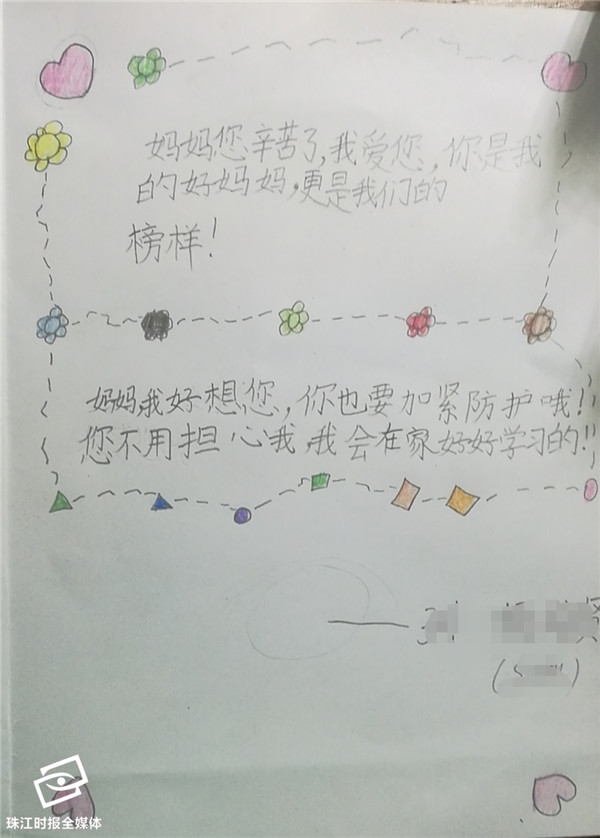 妈妈您辛苦了,我爱您,你是我
的好妈妈,更是我们的
榜样!
妈妈,我好想您,你也要加紧防护哦!
您不用担心我,我会在家好好学习的!!
珠江时报全媒体